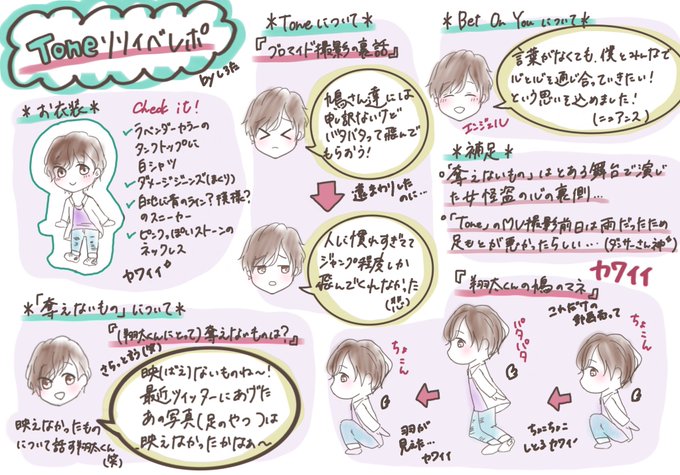 Toneリリイベレポ
byしろた
*お衣装*
Check it!
✓ラベンダーカラーの
タンクトップに
白シャツ
✓ダメージジーンズ(まくり)
✓白地に青のライン?模様?
のスニーカー
✓ピンクっぽいストーンの
ネックレス
カワイイ
*Toneについて*
『ブロマイド撮影の裏話』
鳩さん達には
申し訳ないけど
バタバタって飛んで
もらおう!
遠まわりした
のに…
人に慣れすぎてて
ジャンプ程度しか
飛んでくれなかった
(悲)
*Bet On Youについて*
言葉がなくても、僕とみんなで
心と心を通じ合っていきたい!
という思いを込めました!
(ニュアンス)
エンジェル
*補足*
・「奪えないもの」はとある舞台で演じ
た女怪盗の心の裏側…
・「Tone」のMV撮影前日は雨だったため
足もとが悪かったらしい…(ダンサーさん神)
カワイイ
*「奪えないもの」について*
『(翔太くんにとって)奪えないものは?』
さらっと言う(笑)
映(ばえ)ないものね〜!
最近ツイッターにあげた
あの写真(足のやつ)は
映えなかったかなぁ〜
映えなかったもの
について話す翔太くん
(笑)
『翔太くんの鳩のマネ』
これだけの
計画もって
ちょこん
ちょこちょこ
しとる カワイイ
パタパタ
羽が
見えた…
カワイイ
ちょこん